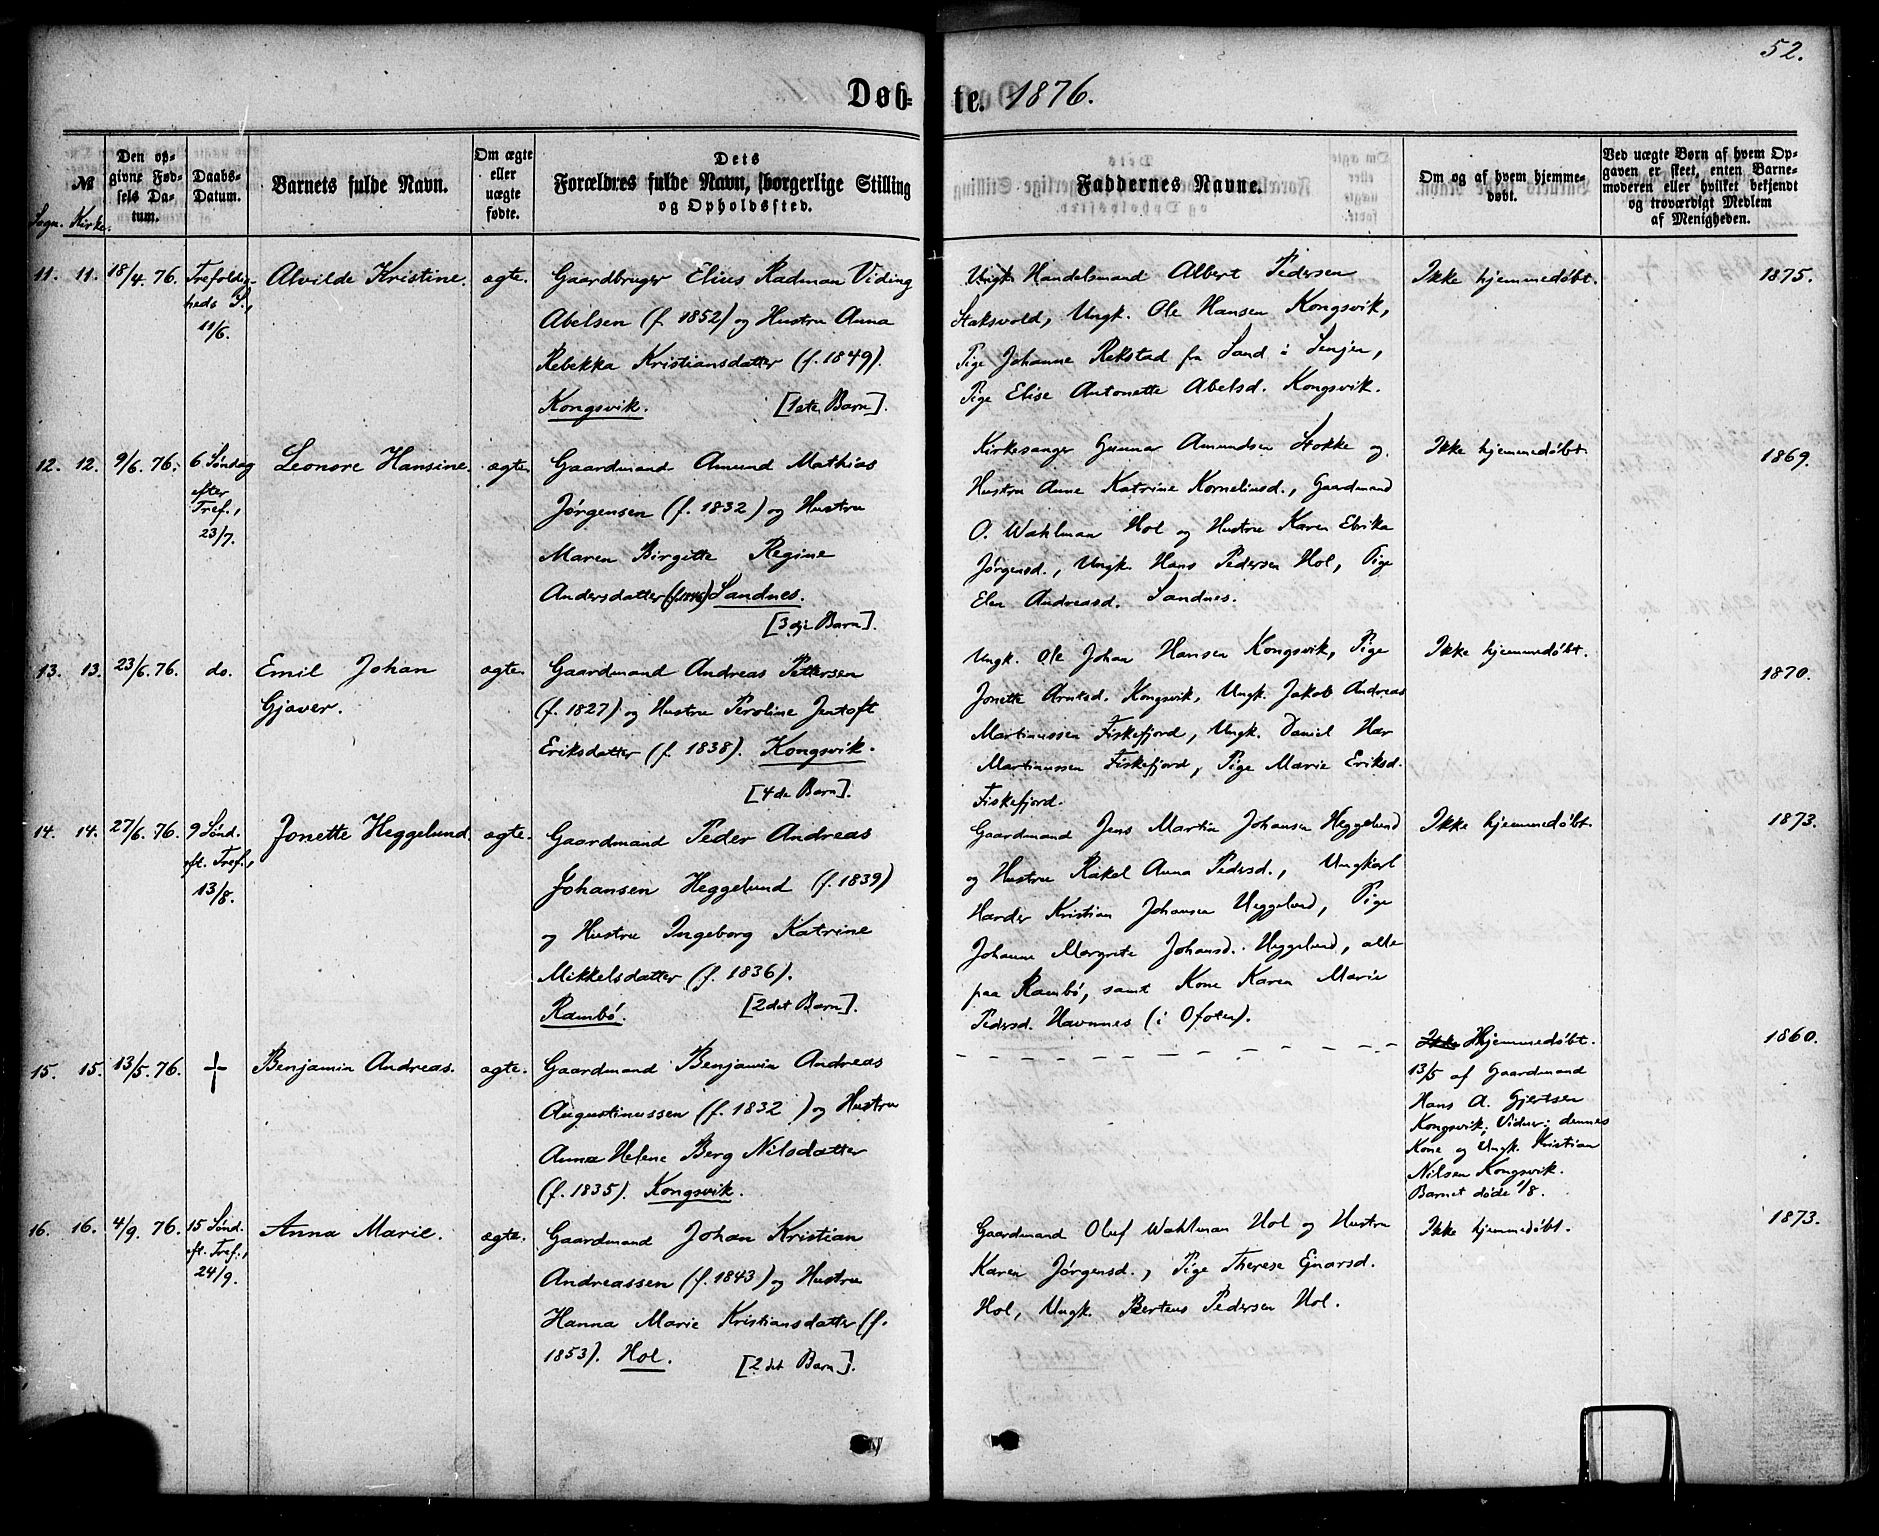 52.
Døb-te. 1876.
№
Sogn. Kirke.
Den op-
givne Fød-
sels Da-
tum.
Daabs-
Datum.
Barnets fulde Navn.
Om ægte
eller
uægte
fødte.
Dets
Forældres fulde Navn, borgerlige Stilling
og Opholdssted.
Faddernes Navne.
Om og af hvem hjemme-
døbt.
Ved uægte Børn af hvem Op-
gaven er skeet, enten Barne-
moderen eller hvilket bekjendt
og troværdigt Medlem
af Menigheden.
11. 11. 18/4. 76.
Trefoldig-
heds S.,
11/6.
Alvilde Kristine.
ægte.
Gaardbruger Elius Radman Viding
Abelsen (f. 1852) og Hustru Anna
Rebekka Kristiansdatter (f. 1849).
Kongsvik. [1ste Barn].
Handelsmand Albert Pedersen
Staksvold, Ungk. Ole Hansen Kongsvik,
Pige Johanne Rekstad fra Sand i Senjen,
Pige Elise Antonette Abelsd. Kongsvik.
Ikke hjemmedøbt.
1875.
12. 12. 9/6. 76.
6 Søndag
efter
Tref.,
23/7.
Leonore Hansine.
ægte.
Gaardmand Amund Mathias
Jørgensen (f. 1832) og Hustru
Maren Birgitte Regine
Andersdatter Sandnes.
[3die Barn].
Kirkesanger Gunnar Amundsen Stokke og
Hustru Anne Katrine Korneliusd., Gaardmand
O. Wahlman Hol og Hustru Karen Elrika
Jørgensd., Ungk. Hans Pedersen Hol, Pige
Elen Andreasd. Sandnes.
Ikke hjemmedøbt.
1869.
13. 13. 23/6. 76.
do.
Emil Johan
Gjæver.
ægte.
Gaardmand Andreas Pettersen
(f. 1827) og Hustru Peroline Jentoft
Eriksdatter (f. 1838). Kongsvik.
[4de Barn].
Ungk. Ole Johan Hansen Kongsvik, Pige
Jonette Arntsd. Kongsvik, Ungk. Jakob Andreas
Martinussen Fiskefjord, Ungk. Daniel Hær
Martinussen Fiskefjord, Pige Marie Eriksd.
Fiskefjord.
Ikke hjemmedøbt.
1870.
14. 14. 27/6. 76.
9 Sønd.
eft. Tref.,
13/8.
Jonette Heggelund.
ægte.
Gaardmand Peder Andreas
Johansen Heggelund (f. 1839)
og Hustru Ingeborg Katrine
Mikkelsdatter (f. 1836).
Rambø. [2det Barn].
Gaardmand Jens Martin Johansen Heggelund
og Hustru Rakel Anna Pedersd., Ungkarl
Harder Kristian Johansen Heggelund, Pige
Johanne Margrete Johansd. Heggelund, alle
paa Rambø, samt Kone Karen Marie
Pedersd. Havnnes (i Ofoten).
Ikke hjemmedøbt.
1873.
15. 15. 13/5. 76.
Benjamin Andreas.
ægte.
Gaardmand Benjamin Andreas
Augustinussen (f. 1832) og Hustru
Anna Helene Berg Nilsdatter
(f. 1835). Kongsvik.
Ikke Hjemmedøbt.
13/5 af Gaardmand
Hans A. Gjertsen
Kongsvik; Vidner: dennes
Kone og Ungk. Kristian
Nilsen Kongsvik.
Barnet døde 1/8.
1860.
16. 16. 4/9. 76.
15 Sønd.
eft. Tref.,
24/9.
Anna Marie.
ægte.
Gaardmand Johan Kristian
Andreassen (f. 1843) og Hustru
Hanna Marie Kristiansdatter (f.
1853). Hol. [2det Barn].
Gaardmand Oluf Wahlman Hol og Hustru
Karen Jørgensd., Pige Therese Ejnarsd.
Hol, Ungk. Berteus Pedersen Hol.
Ikke hjemmedøbt.
1873.